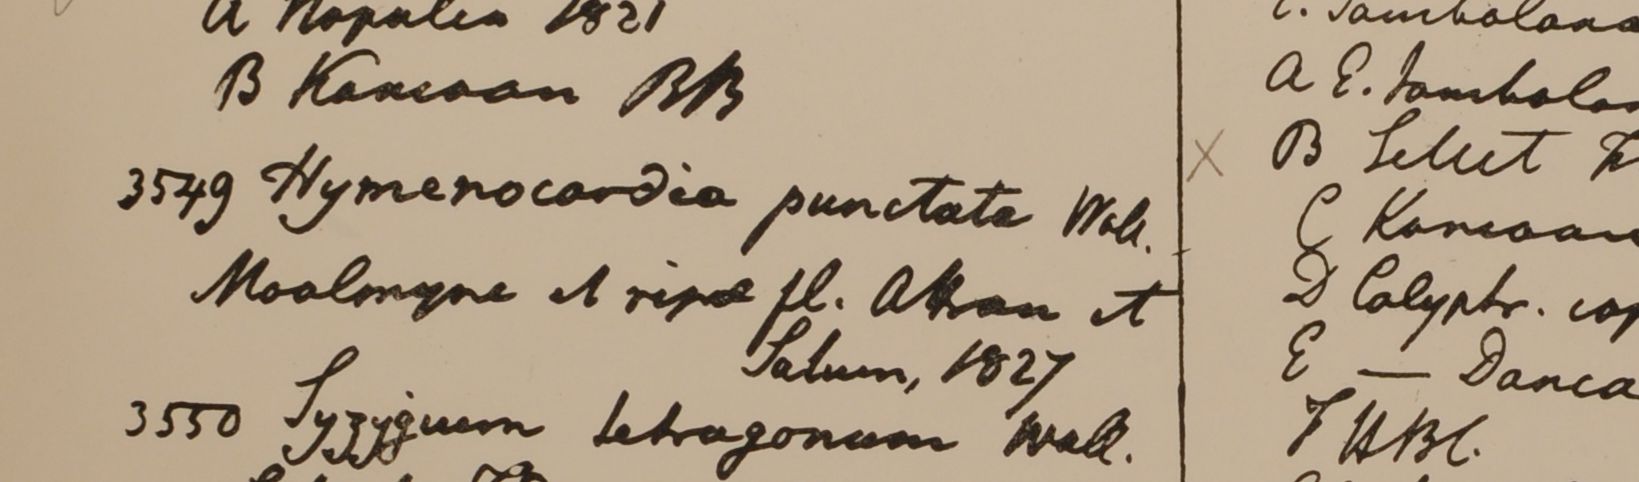 A Napalia 1821
B Kamaoan BB
3549 Hymenocardia punctata Wall.
Moalmyne et ripæ fl. Attran et
Salum, 1827
3550 Syzygium tetragonum Wall.
E. Jambolana
A E. Jambolan
B Silhet
C Kamaoan
D Calyptr. cap
E — Danca
F HBC.